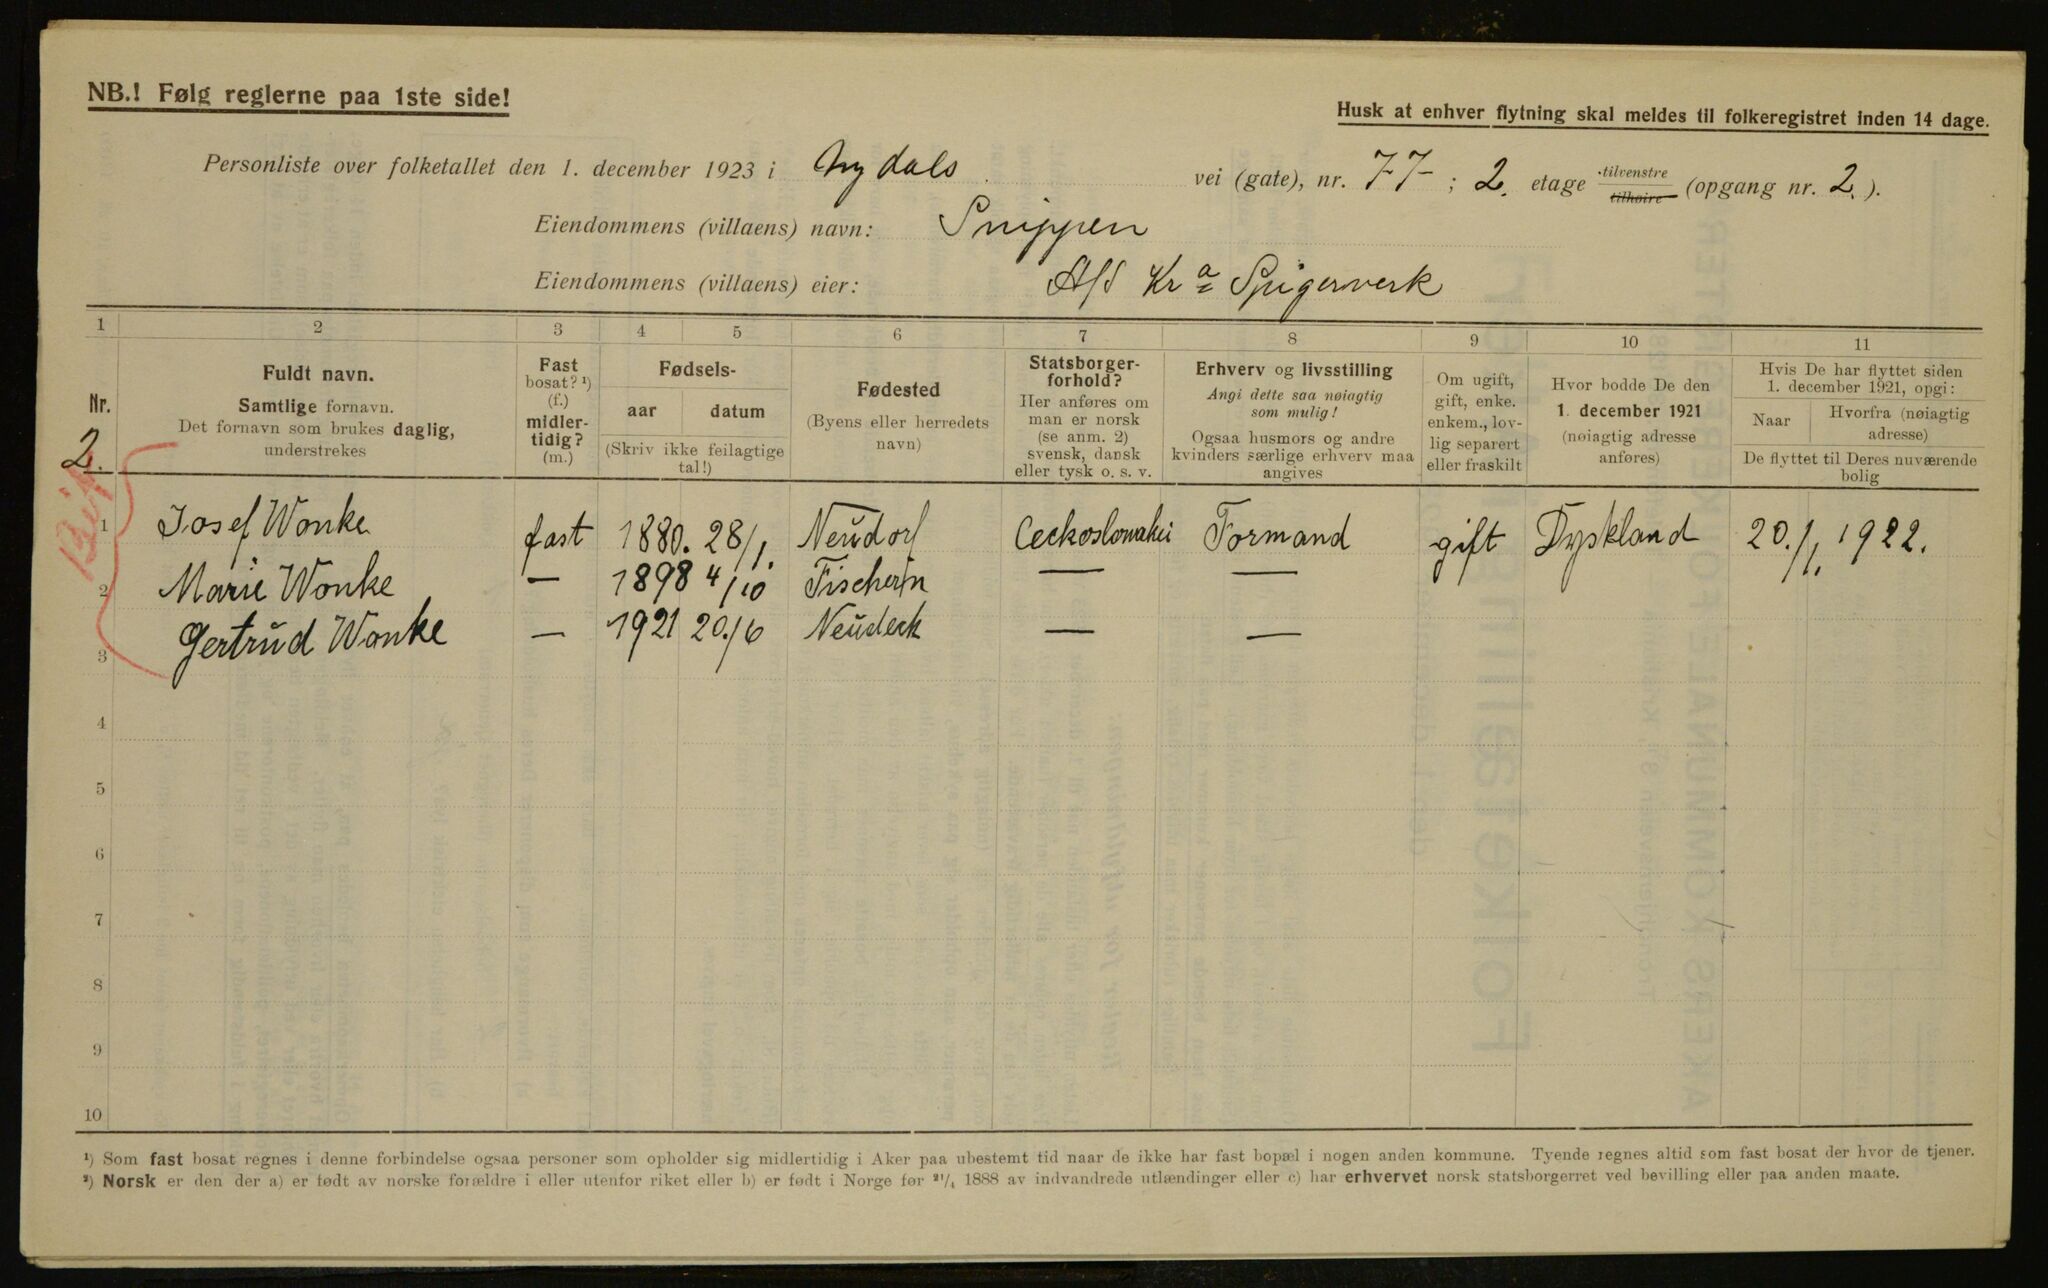 NB.! Følg reglerne paa 1ste side!
Husk at enhver flytning skal meldes til folkeregistret inden 14 dage.
Personliste over folketallet den 1. december 1923 i Nydals vei (gate), nr. 77 ; 2. etage tilvenstre tilhøire (opgang nr. 2.).
Eiendommens (villaens) navn: Snippen
Eiendommens (villaens) eier: A/S Kra Spigerverk
1 2 3 4 5 6 7 8 9 10 11
Nr.
2.
Fuldt navn.
Samtlige fornavn.
Det fornavn som brukes daglig,
understrekes
Fast
bosat? ¹)
(f.)
midler-
tidig?
(m.)
Fødsels-
aar datum
(Skriv ikke feilagtige
tal!)
Fødested
(Byens eller herredets
navn)
Statsborger-
forhold?
Her anføres om
man er norsk
(se anm. 2)
svensk, dansk
eller tysk o. s. v.
Erhverv og livsstilling
Angi dette saa nøiagtig
som mulig!
Ogsaa husmors og andre
kvinders særlige erhverv maa
angives
Om ugift,
gift, enke.
enkem., lov-
lig separert
eller fraskilt
Hvor bodde De den
1. december 1921
(nøiagtig adresse
anføres)
Hvis De har flyttet siden
1. december 1921, opgi:
Naar Hvorfra (nøiagtig
adresse)
De flyttet til Deres nuværende
bolig
1 Josef Wonke fast 1880. 28/1. Neudorf Ceckoslowakei Formand gift Dyskland 20./1. 1922.
2 Marie Wonke — 1898 4/10 Fischern — —
3 Gertrud Wonke — 1921 20./6 Neudeck — —
4
5
6
7
8
9
10
¹) Som fast bosat regnes i denne forbindelse ogsaa personer som opholder sig midlertidig i Aker paa ubestemt tid naar de ikke har fast bopæl i nogen anden kommune. Tyende regnes altid som fast bosat der hvor de tjener.
²) Norsk er den der a) er født av norske forældre i eller utenfor riket eller b) er født i Norge før 21/4 1888 av indvandrede utlændinger eller c) har erhvervet norsk statsborgerret ved bevilling eller paa anden maate.